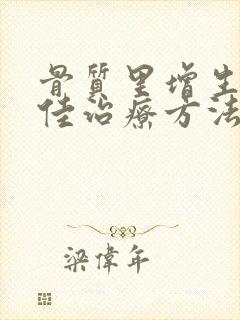 骨質里增生
佳治療方法
梁偉年